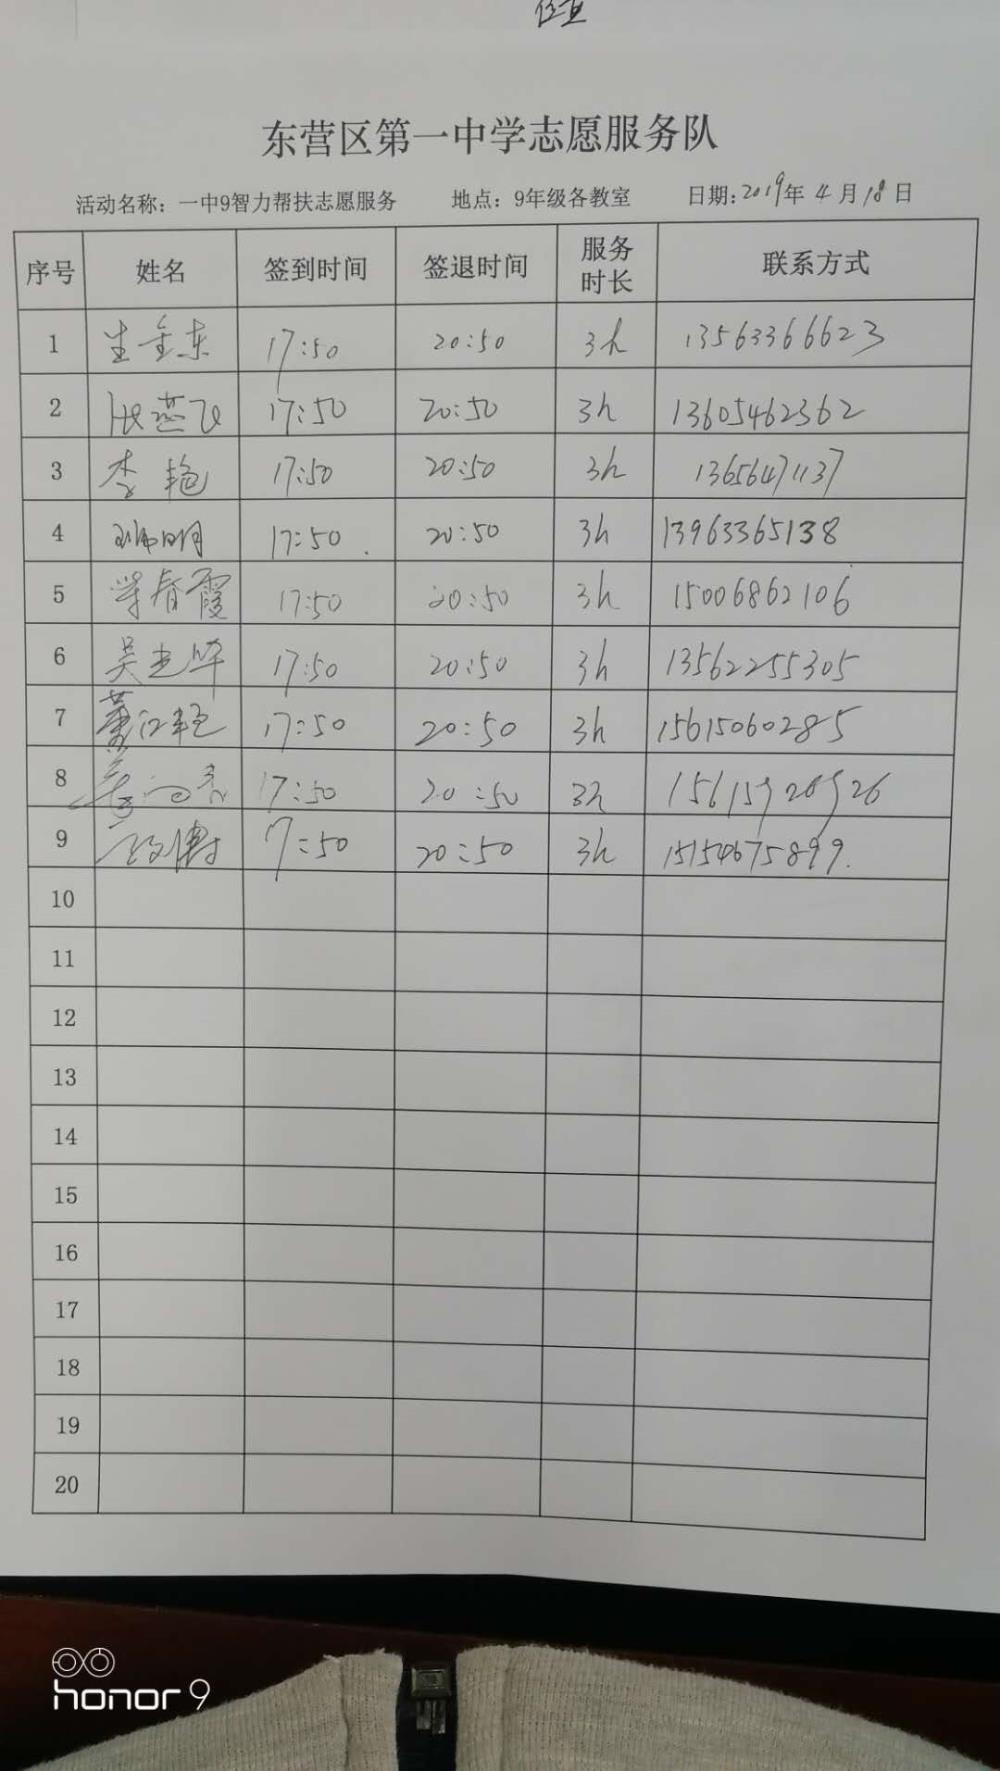 东营区第一中学志愿服务队
活动名称：一中9智力帮扶志愿服务 地点：9年级各教室 日期：2019年4月18日
序号 姓名 签到时间 签退时间 服务时长 联系方式
1 生金东 17:50 20:50 3h 13563366623
2 张燕飞 17:50 20:50 3h 13605462362
3 李艳 17:50 20:50 3h 13656471137
4 17:50 20:50 3h 13963365138
5 春霞 17:50 20:50 3h 15006862106
6 吴 17:50 20:50 3h 13562255305
7 董江艳 17:50 20:50 3h 15615060285
8 17:50 20:50 3h
9 7:50 20:50 3h 15154675899.
10
11
12
13
14
15
16
17
18
19
20
honor 9